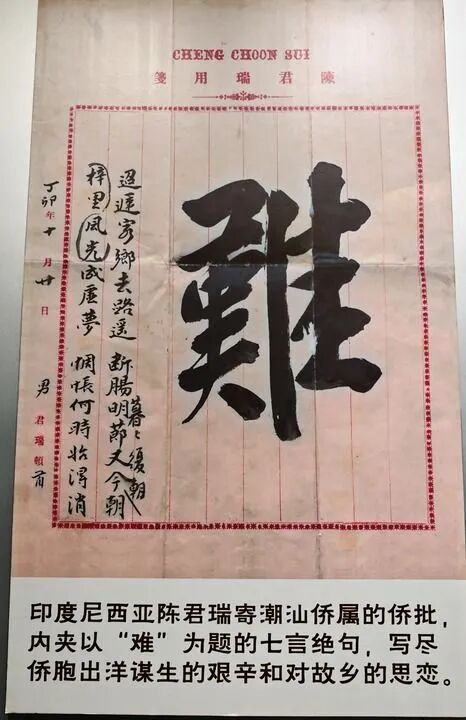 CHENG CHOON SUI
陳君瑞用箋
難
迢遞客鄉去路遥 断腸明節又今朝
暮〻復朝
梓里風光成虚夢 惆悵何時始得消
丁卯年十月廿日 男 君瑞頓首
印度尼西亚陈君瑞寄潮汕侨属的侨批，
内夹以“难”为题的七言绝句，写尽
侨胞出洋谋生的艰辛和对故乡的思恋。